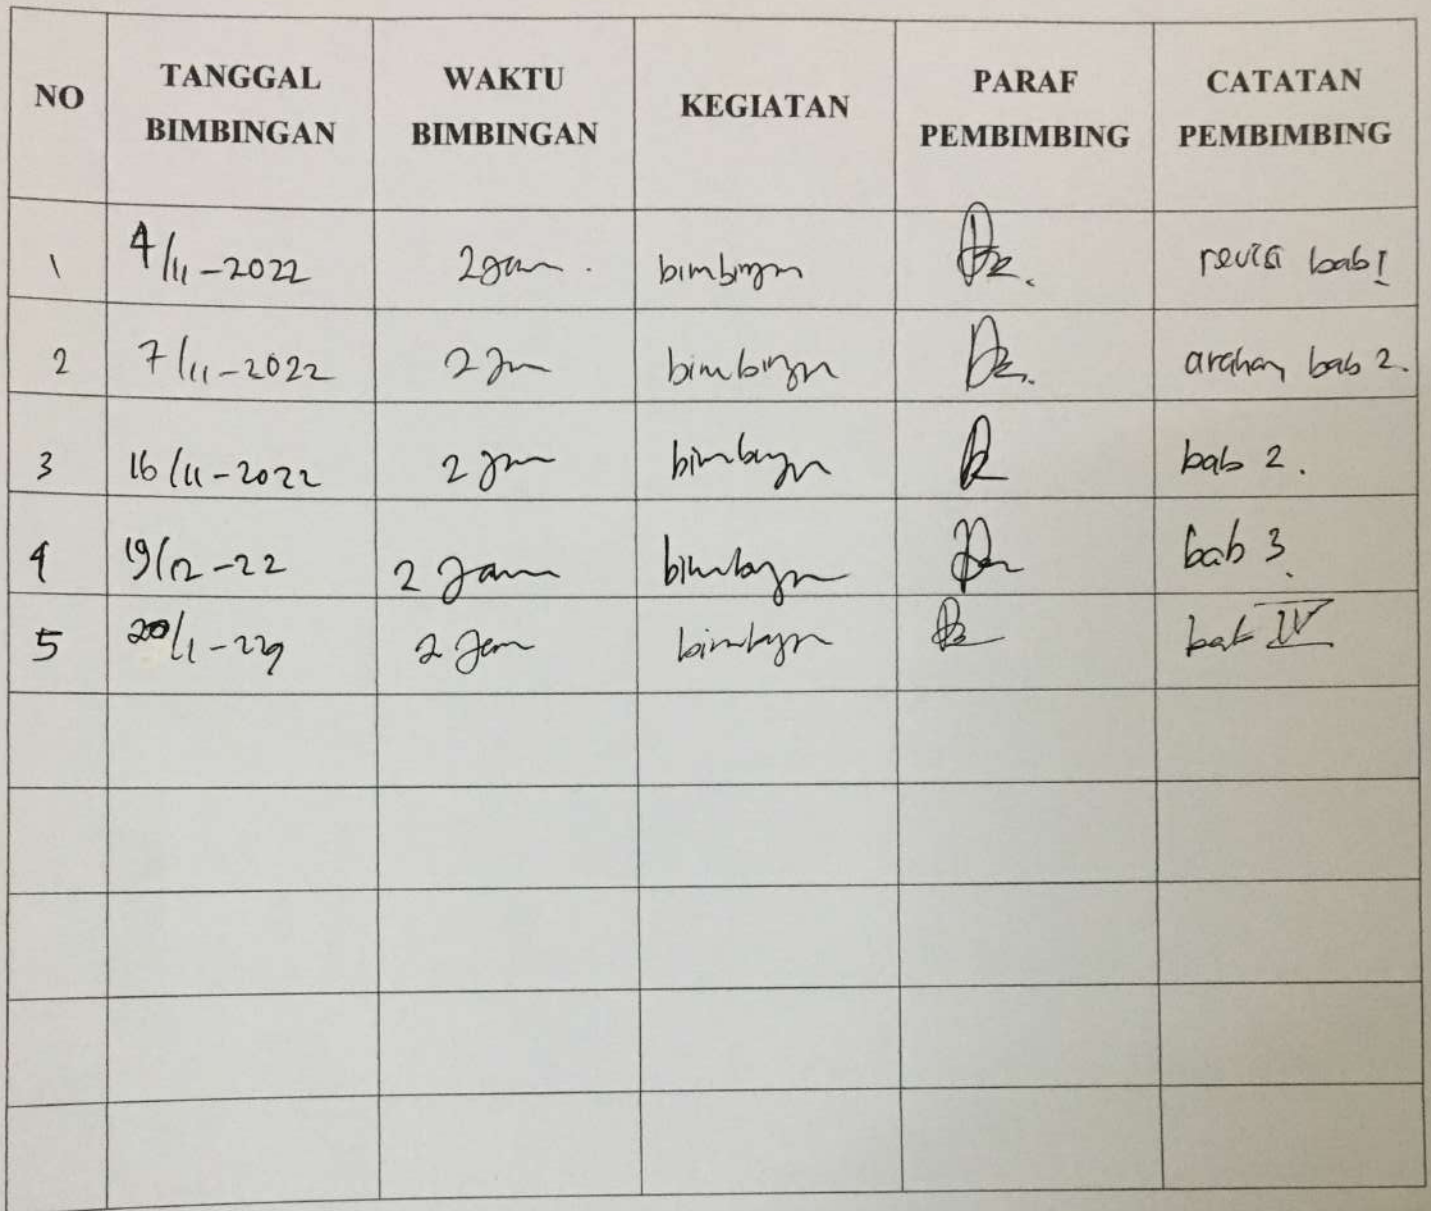 NO TANGGAL BIMBINGAN WAKTU BIMBINGAN KEGIATAN PARAF PEMBIMBING CATATAN PEMBIMBING
1 4/11-2022 2 jam. bimbingan revisi bab I
2 7/11-2022 2 jam bimbingan arahan bab 2.
3 16/11-2022 2 jam bimbingan bab 2.
4 19/12-22 2 Jam bimbingan bab 3.
5 2 Jam bimbingan bab IV